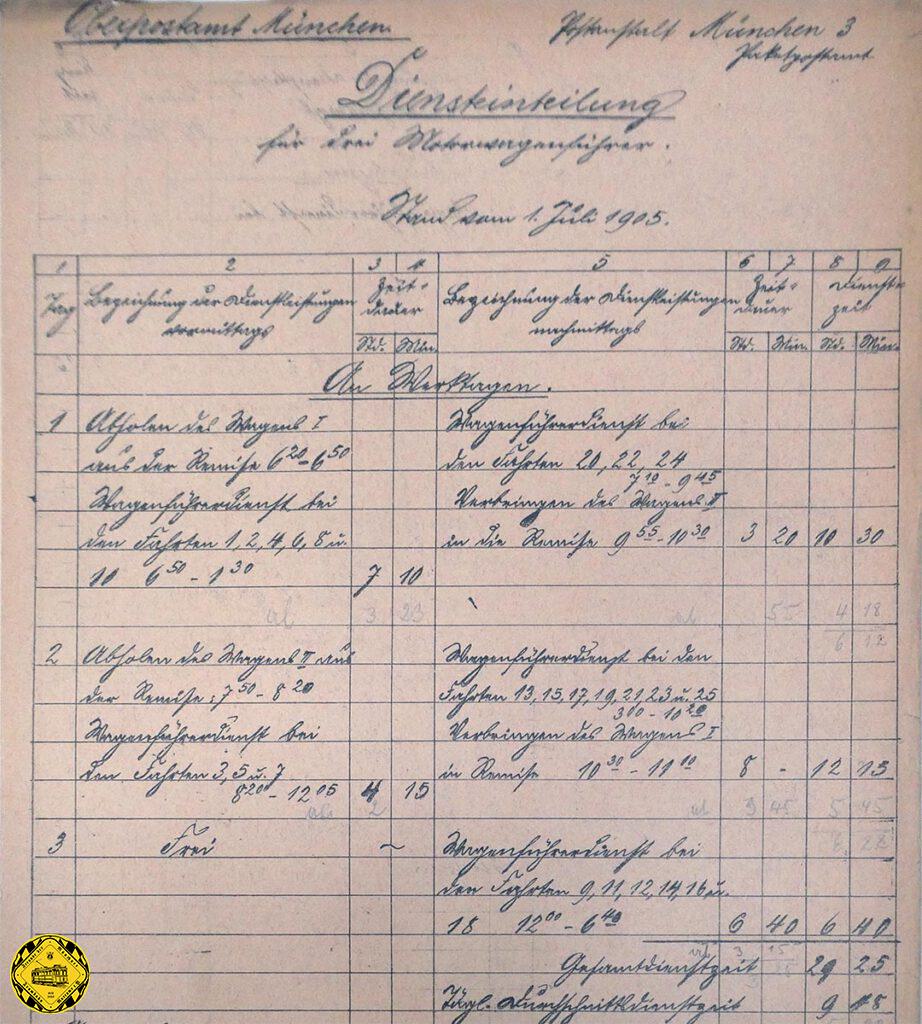 Oberpostamt München.
Postanstalt München 3
Paketpostamt
Diensteinteilung
für drei Motorwagenführer.
Stand vom 1. Juli 1905.
1 2 3 4 5 6 7 8 9
Tag Bezeichnung der Dienstleistungen vormittags Zeit-dauer Bezeichnung der Dienstleistungen nachmittags Zeit-dauer Dienst-zeit
Std. Min. Std. Min. Std. Min.
An Werktagen.
1 Abholen des Wagens I
aus der Remise 6 20 - 6 50
Wagenführerdienst bei
den Fahrten 1, 2, 4, 6, 8 u.
10 6 50 - 1 30 7 10
ab 3 23
Wagenführerdienst bei
den Fahrten 20, 22, 24
7 10 - 9 45
Verbringen des Wagens II
in die Remise 9 55 - 10 30 3 20 10 30
ab 55 4 18
6 12
2 Abholen des Wagens II aus
der Remise: 7 50 - 8 20
Wagenführerdienst bei
den Fahrten 3, 5 u. 7
8 20 - 12 05 4 15
ab 2
Wagenführerdienst bei den
Fahrten 13, 15, 17, 19, 21, 23 u. 25
3 00 - 10 20
Verbringen des Wagens I
in Remise 10 30 - 11 10 8 - 12 15
ab 3 45 5 45
3 Frei ~
Wagenführerdienst bei
den Fahrten 9, 11, 12, 14, 16 u.
18 12 00 - 6 40 6 40 6 40
Gesamtdienstzeit 29 25
Tägl. Durchschnittsdienstzeit 9 48